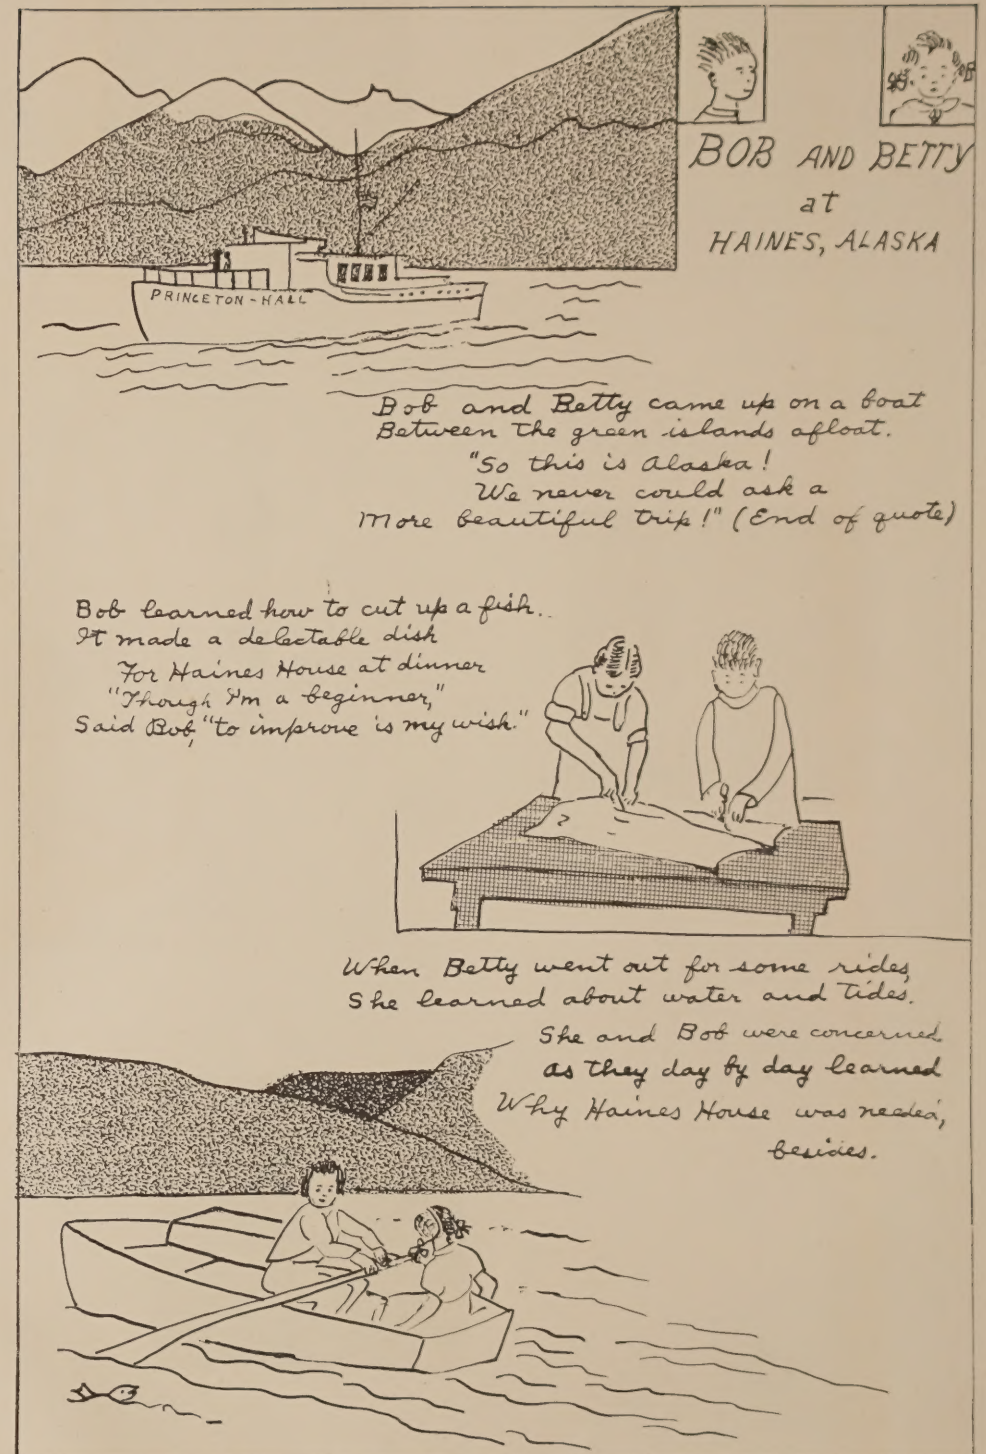 BOB AND BETTY
at
HAINES, ALASKA
PRINCETON-HALL
Bob and Betty came up on a boat
Between the green islands afloat.
"So this is Alaska!
We never could ask a
More beautiful trip!" (End of quote)
Bob learned how to cut up a fish.
It made a delectable dish
For Haines House at dinner
"Though I'm a beginner,"
Said Bob, "to improve is my wish."
When Betty went out for some rides,
She learned about water and tides.
She and Bob were concerned
as they day by day learned
Why Haines House was needed,
besides.